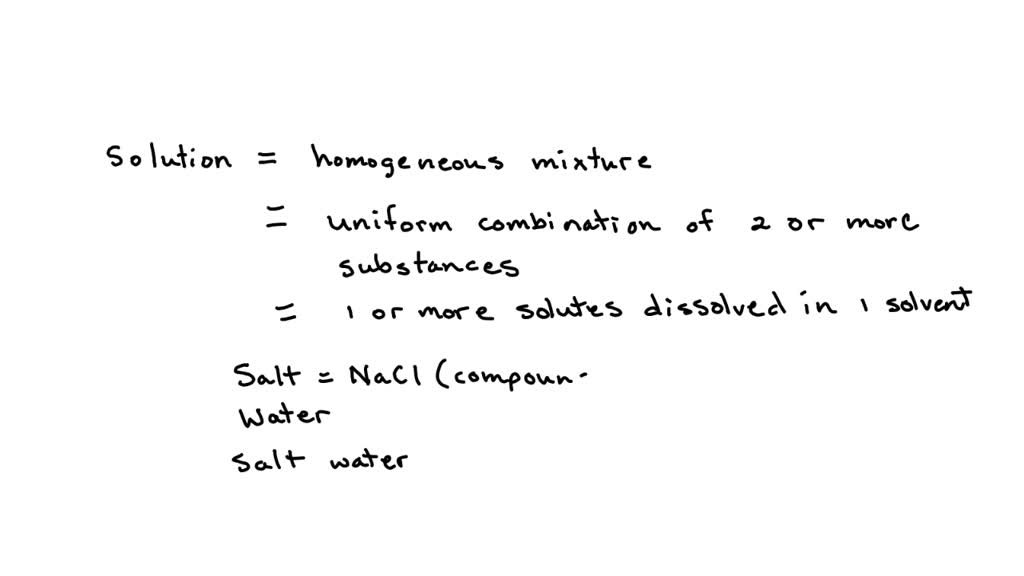 Solution = homogeneous mixture
= uniform combination of 2 or more
substances
= 1 or more solutes dissolved in 1 solvent
Salt = NaCl (compoun-
Water
Salt water